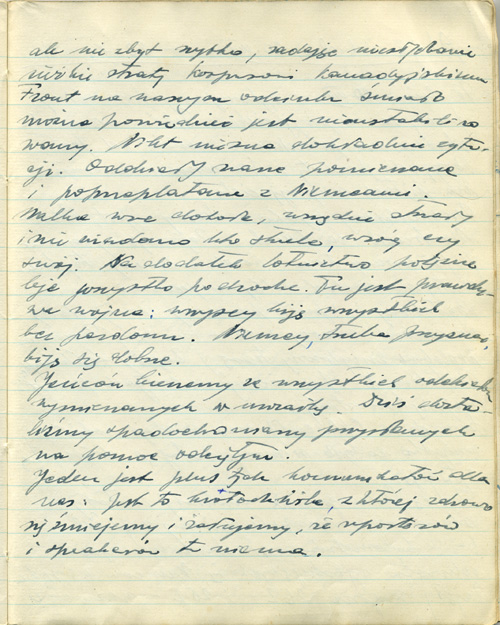 ale nie zbyt szybko, zadając niesłychanie
wielkie straty korpusowi kanadyjskiemu
Front na naszym odcinku śmiało
można powiedzieć jest nieustabilizo
wany. Nikt nie zna dokładnie sytu-
cji. Oddziały nasze pomieszane
i poprzeplatane z Niemcami.
Walka wre dookoła, wszędzie strzały
i nie wiadomo kto strzela, wróg czy
swój. Na dodatek lotnictwo potężnie
leje wszystko po drodze. Tu jest prawdzi-
wa wojna: wszyscy biją wszystkich
bez pardonu. Niemcy, trzeba przyznać,
biją się dobrze.
Jeńców bierzemy ze wszystkich oddziałów
wymienianych w wywiadzie. Dziś
spadochroniarzy przysłanych
na pomoc odciętym.
Jeden jest plus tych komunikatów dla
nas: jest to krotochwila, z której zdrowo
się śmiejemy i żałujemy, że reporterów
i speakerów tu niema.